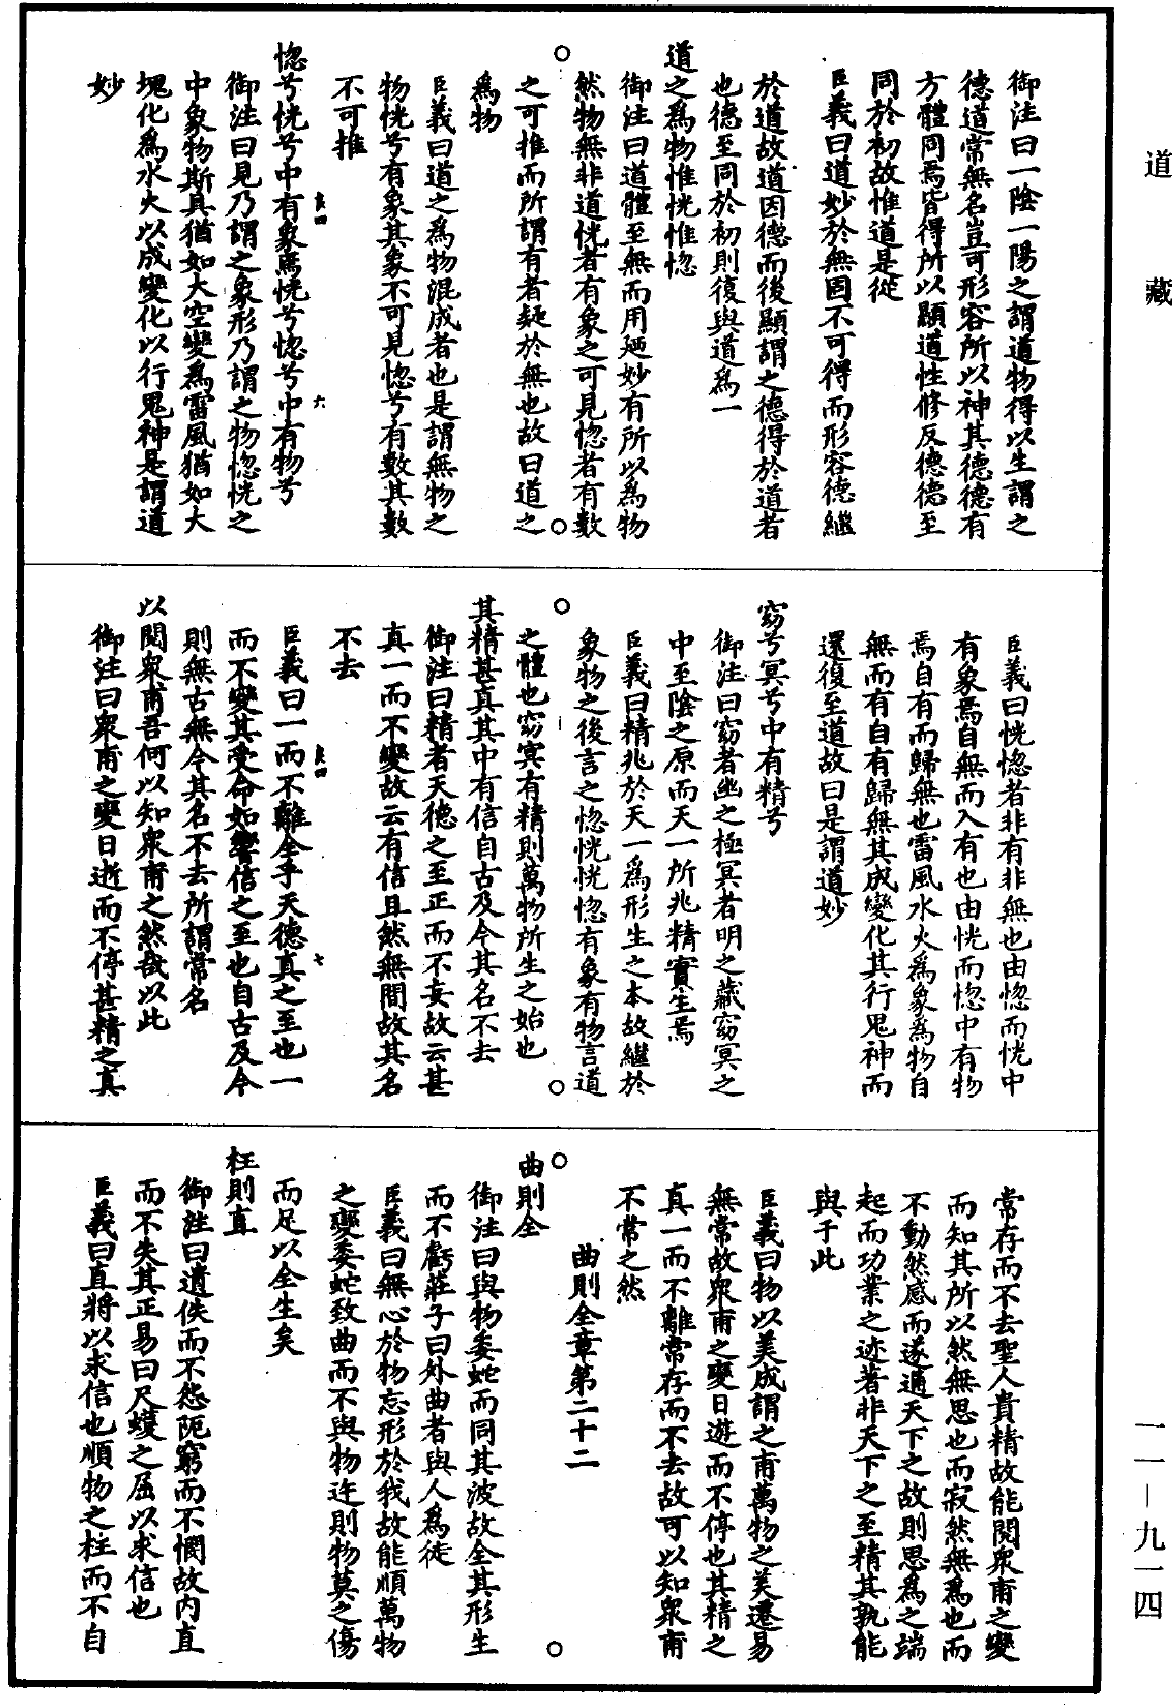 道藏
一一—九一四
御注曰一陰一陽之謂道物得以生謂之
德道常無名豈可形容所以神其德德有
方體同焉皆得所以顯道性修反德德至
同於初故惟道是從
臣義曰道妙於無固不可得而形容德繼
於道故道因德而後顯謂之德得於道者
也德至同於初則復與道爲一
道之爲物惟恍惟惚
御注曰道體至無而用廼妙有所以爲物
然物無非道恍者有象之可見惚者有數
之可推而所謂有者疑於無也故曰道之
爲物
臣義曰道之爲物混成者也是謂無物之
物恍兮有象其象不可見惚兮有數其數
不可推
惚兮恍兮中有象焉恍兮惚兮中有物兮
良四
六
御注曰見乃謂之象形乃謂之物惚恍之
中象物斯具猶如大空變爲雷風猶如大
塊化爲水火以成變化以行鬼神是謂道
妙
臣義曰恍惚者非有非無也由惚而恍中
有象焉自無而入有也由恍而惚中有物
焉自有而歸無也雷風水火爲象爲物自
無而有自有歸無其成變化其行鬼神而
還復至道故曰是謂道妙
窈兮冥兮中有精兮
御注曰窈者幽之極冥者明之藏窈冥之
中至陰之原而天一所兆精實生焉
臣義曰精兆於天一爲形生之本故繼於
象物之後言之惚恍恍惚有象有物言道
之體也窈冥有精則萬物所生之始也
其精甚真其中有信自古及今其名不去
御注曰精者天德之至正而不妄故云甚
真一而不變故云有信且然無間故其名
不去
臣義曰一而不離全乎天德真之至也一
良四
七
而不變其受命如響信之至也自古及今
則無古無今其名不去所謂常名
以閱衆甫吾何以知衆甫之然哉以此
御注曰衆甫之變日逝而不停甚精之真
常存而不去聖人貴精故能閱衆甫之變
而知其所以然無思也而寂然無爲也而
不動然感而遂通天下之故則思爲之端
起而功業之迹著非天下之至精其孰能
與于此
臣義曰物以美成謂之甫萬物之美遷易
無常故衆甫之變日遊而不停也其精之
真一而不離常存而不去故可以知衆甫
不常之然
曲則全章第二十二
曲則全
御注曰與物委蛇而同其波故全其形生
而不虧莊子曰外曲者與人爲徒
臣義曰無心於物忘形於我故能順萬物
之變委蛇致曲而不與物迕則物莫之傷
而足以全生矣
枉則直
御注曰遺佚而不怨阨窮而不憫故内直
而不失其正易曰尺蠖之屈以求信也
臣義曰直將以求信也順物之枉而不自